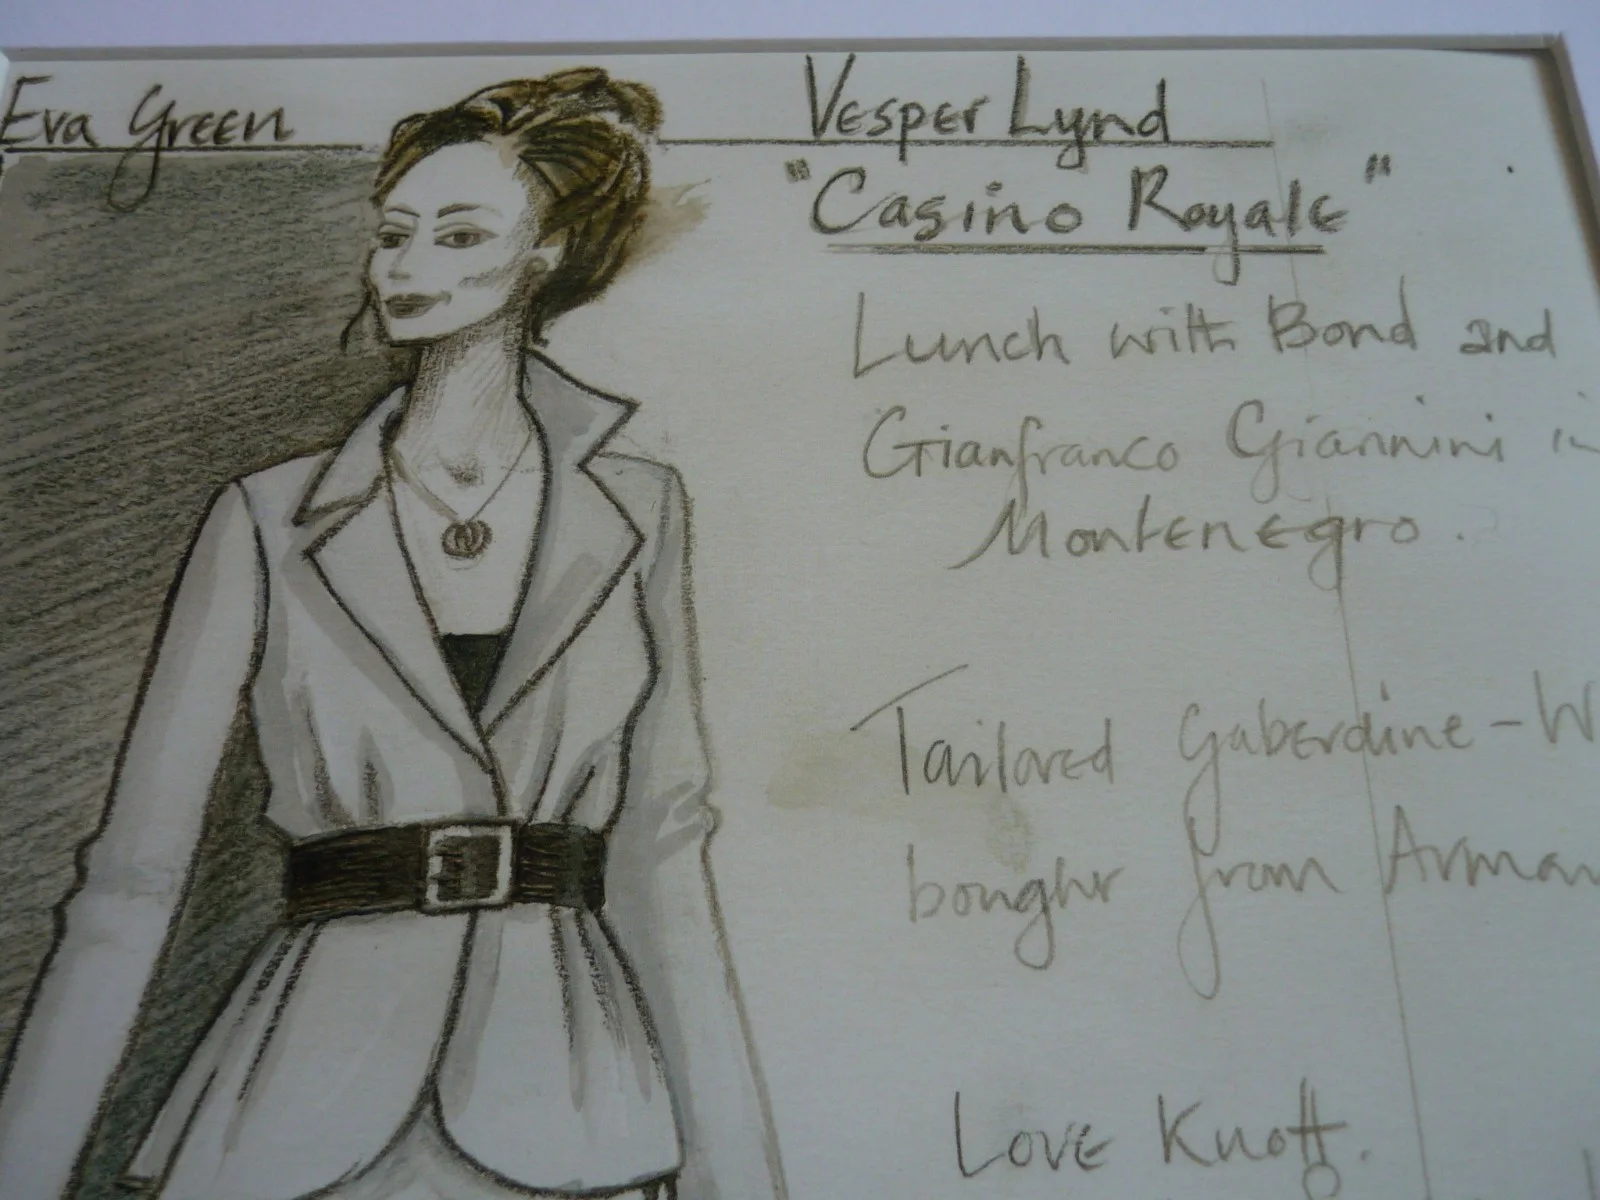 Eva Green
Vesper Lynd
"Casino Royale"
Lunch with Bond and
Gianfranco Giannini in
Montenegro.
Tailored Gaberdine - W
bought from Arman
Love Knott.